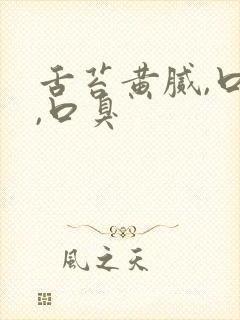 舌苔黄腻,口
,口臭
風之天